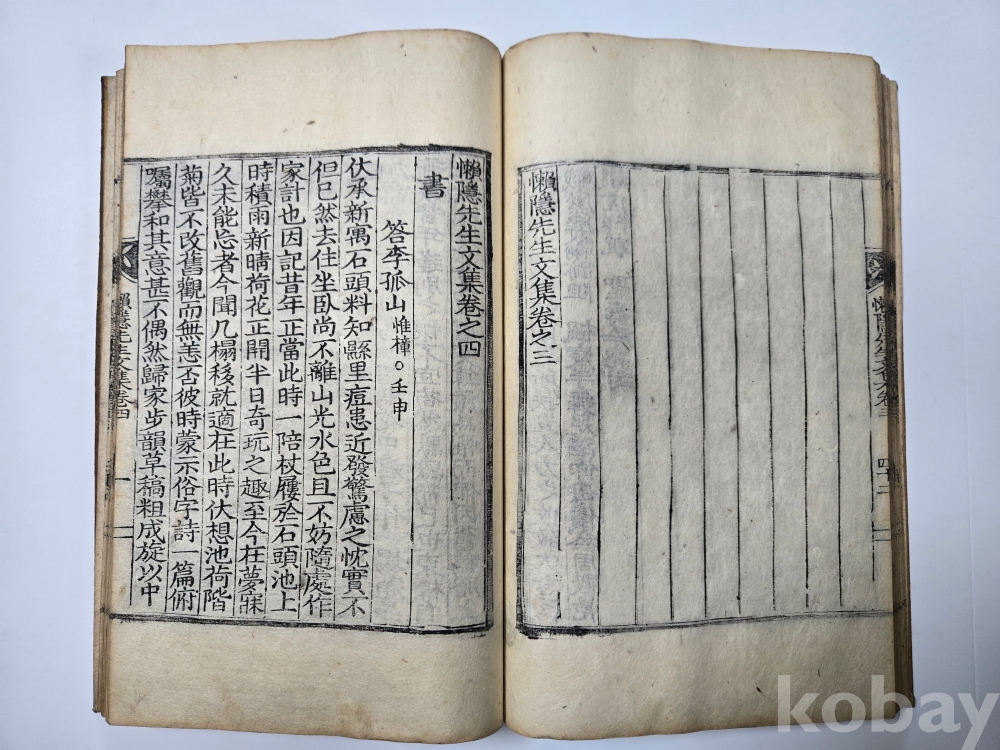 懶隱先生文集卷之三
懶隱先生文集卷之四
書
答李孤山 惟樟 ○ 壬申
伏承新寓石頭料知縣里痘患近發驚慮之忱實不
但已然去住坐臥尚不離山光水色且不妨隨處作
家計也因記昔年正當此時一陪杖屨於石頭池上
時積雨新晴荷花正開半日奇玩之趣至今在夢寐
久未能忘者今聞几榻移就適在此時伏想池荷階
菊皆不改舊觀而無恙否彼時蒙示俗字詩一篇俯
囑攀和其意甚不偶然歸家步韻草稿粗成旋以中
懶隱先生文集卷四
一
kobay